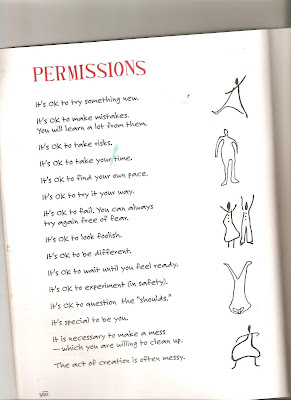 PERMISSIONS
It's OK to try something new.
It's OK to make mistakes.
You will learn a lot from them.
It's OK to take risks.
It's OK to take your time.
It's OK to find your own pace.
It's OK to try it your way.
It's OK to fail. You can always
try again free of fear.
It's OK to look foolish.
It's OK to be different.
It's OK to wait until you feel ready.
It's OK to experiment (in safety).
It's OK to question the "shoulds."
It's special to be you.
It is necessary to make a mess
— which you are willing to clean up.
The act of creation is often messy.
viii